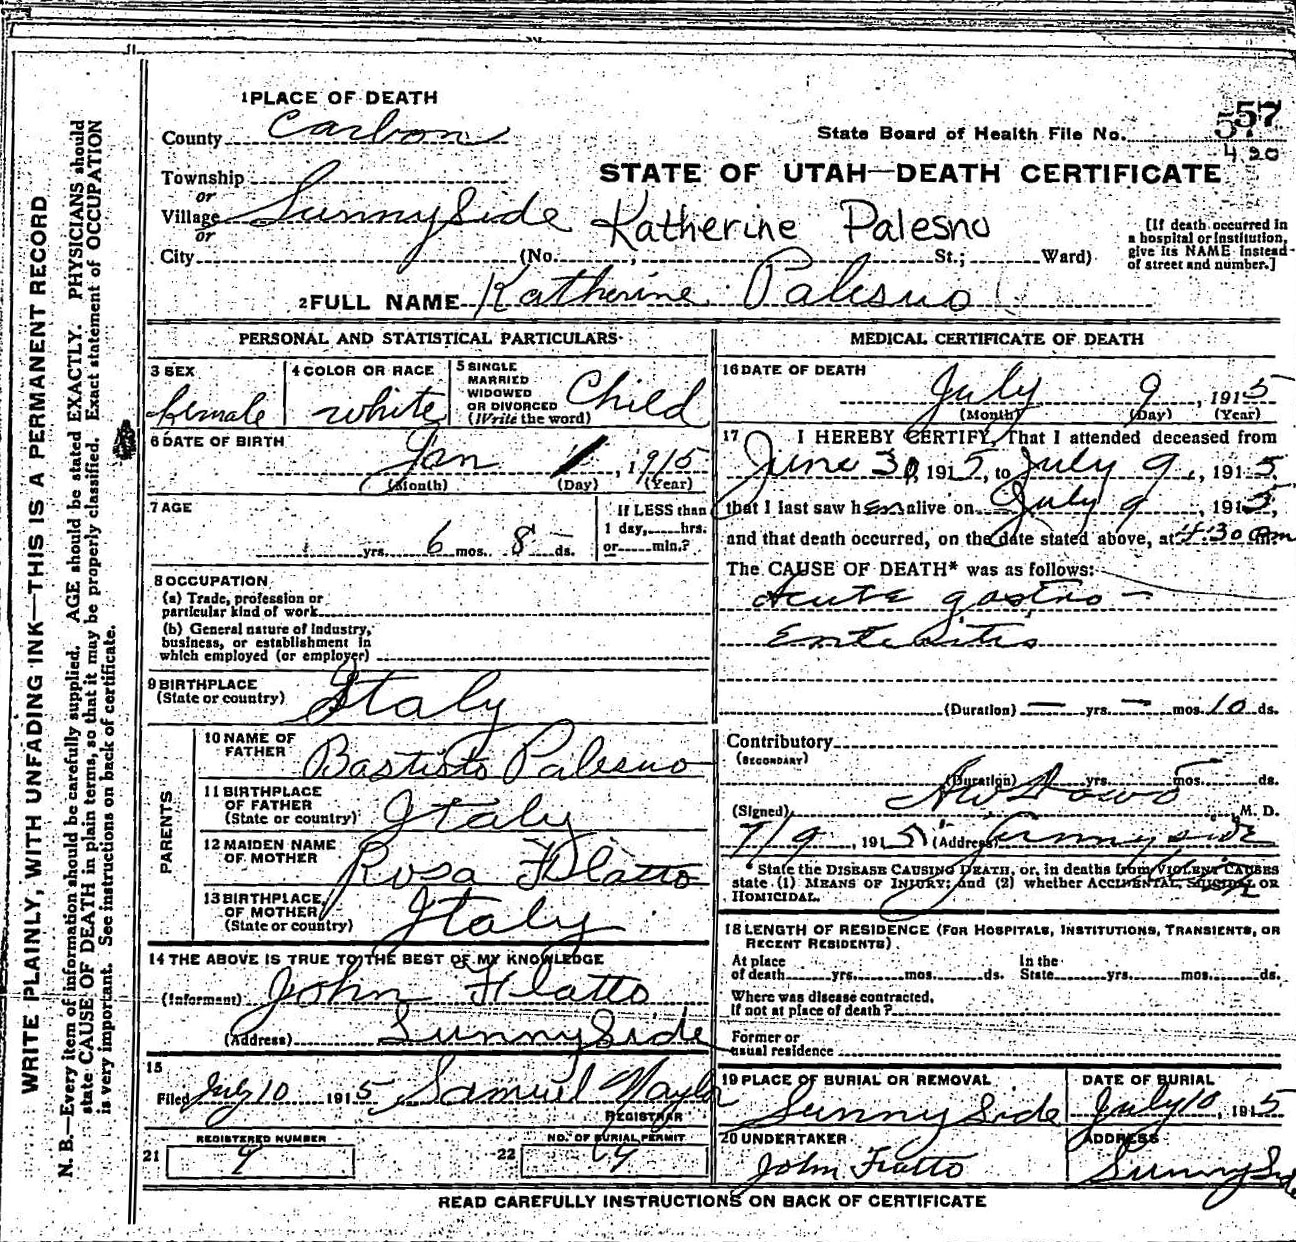 1 PLACE OF DEATH
County Carbon
State Board of Health File No. 557
420
Township
or
Village Sunnyside
or
STATE OF UTAH—DEATH CERTIFICATE
Katherine Palesno
City (No. , St.; Ward)
[If death occurred in
a hospital or institution,
give its NAME instead
of street and number.]
2 FULL NAME Katherine Palesno
PERSONAL AND STATISTICAL PARTICULARS
3 SEX
female
4 COLOR OR RACE
white
5 SINGLE
MARRIED
WIDOWED
OR DIVORCED
(Write the word)
Child
6 DATE OF BIRTH
Jan 1, 1915
(Month) (Day) (Year)
7 AGE
yrs. 6 mos. 8 ds.
If LESS than
1 day, hrs.
or min.?
8 OCCUPATION
(a) Trade, profession or
particular kind of work
(b) General nature of Industry,
business, or establishment in
which employed (or employer)
9 BIRTHPLACE
(State or country) Italy
PARENTS
10 NAME OF
FATHER Bastisto Palesno
11 BIRTHPLACE
OF FATHER
(State or country) Italy
12 MAIDEN NAME
OF MOTHER Rosa Flatto
13 BIRTHPLACE
OF MOTHER
(State or country) Italy
14 THE ABOVE IS TRUE TO THE BEST OF MY KNOWLEDGE
(Informant) John Flatto
(Address) Sunnyside
15
Filed July 10 1915 Samuel Naylor
REGISTRAR
REGISTERED NUMBER
21 9
NO. OF BURIAL PERMIT
22 9
MEDICAL CERTIFICATE OF DEATH
16 DATE OF DEATH
July 9, 1915
(Month) (Day) (Year)
17 I HEREBY CERTIFY, That I attended deceased from
June 30, 1915, to July 9, 1915,
that I last saw her alive on July 9, 1915,
and that death occurred, on the date stated above, at 4:30 am
The CAUSE OF DEATH* was as follows:
Acute gastro-
Enteritis
(Duration) — yrs. — mos. 10 ds.
Contributory
(SECONDARY)
(Duration) yrs. mos. ds.
(Signed) M. D.
7/9, 1915 (Address) Sunnyside
* State the DISEASE CAUSING DEATH, or, in deaths from VIOLENT CAUSES
state (1) MEANS OF INJURY; and (2) whether ACCIDENTAL, SUICIDAL OR
HOMICIDAL.
18 LENGTH OF RESIDENCE (FOR HOSPITALS, INSTITUTIONS, TRANSIENTS, OR
RECENT RESIDENTS).
At place
of death yrs. mos. ds.
In the
State yrs. mos. ds.
Where was disease contracted,
if not at place of death?
Former or
usual residence
19 PLACE OF BURIAL OR REMOVAL
Sunnyside
DATE OF BURIAL
July 10, 1915
20 UNDERTAKER
John Fratto
ADDRESS
Sunnyside
READ CAREFULLY INSTRUCTIONS ON BACK OF CERTIFICATE
WRITE PLAINLY, WITH UNFADING INK—THIS IS A PERMANENT RECORD
N. B.—Every item of information should be carefully supplied. AGE should be stated EXACTLY. PHYSICIANS should
state CAUSE OF DEATH in plain terms, so that it may be properly classified. Exact statement of OCCUPATION
is very important. See instructions on back of certificate.